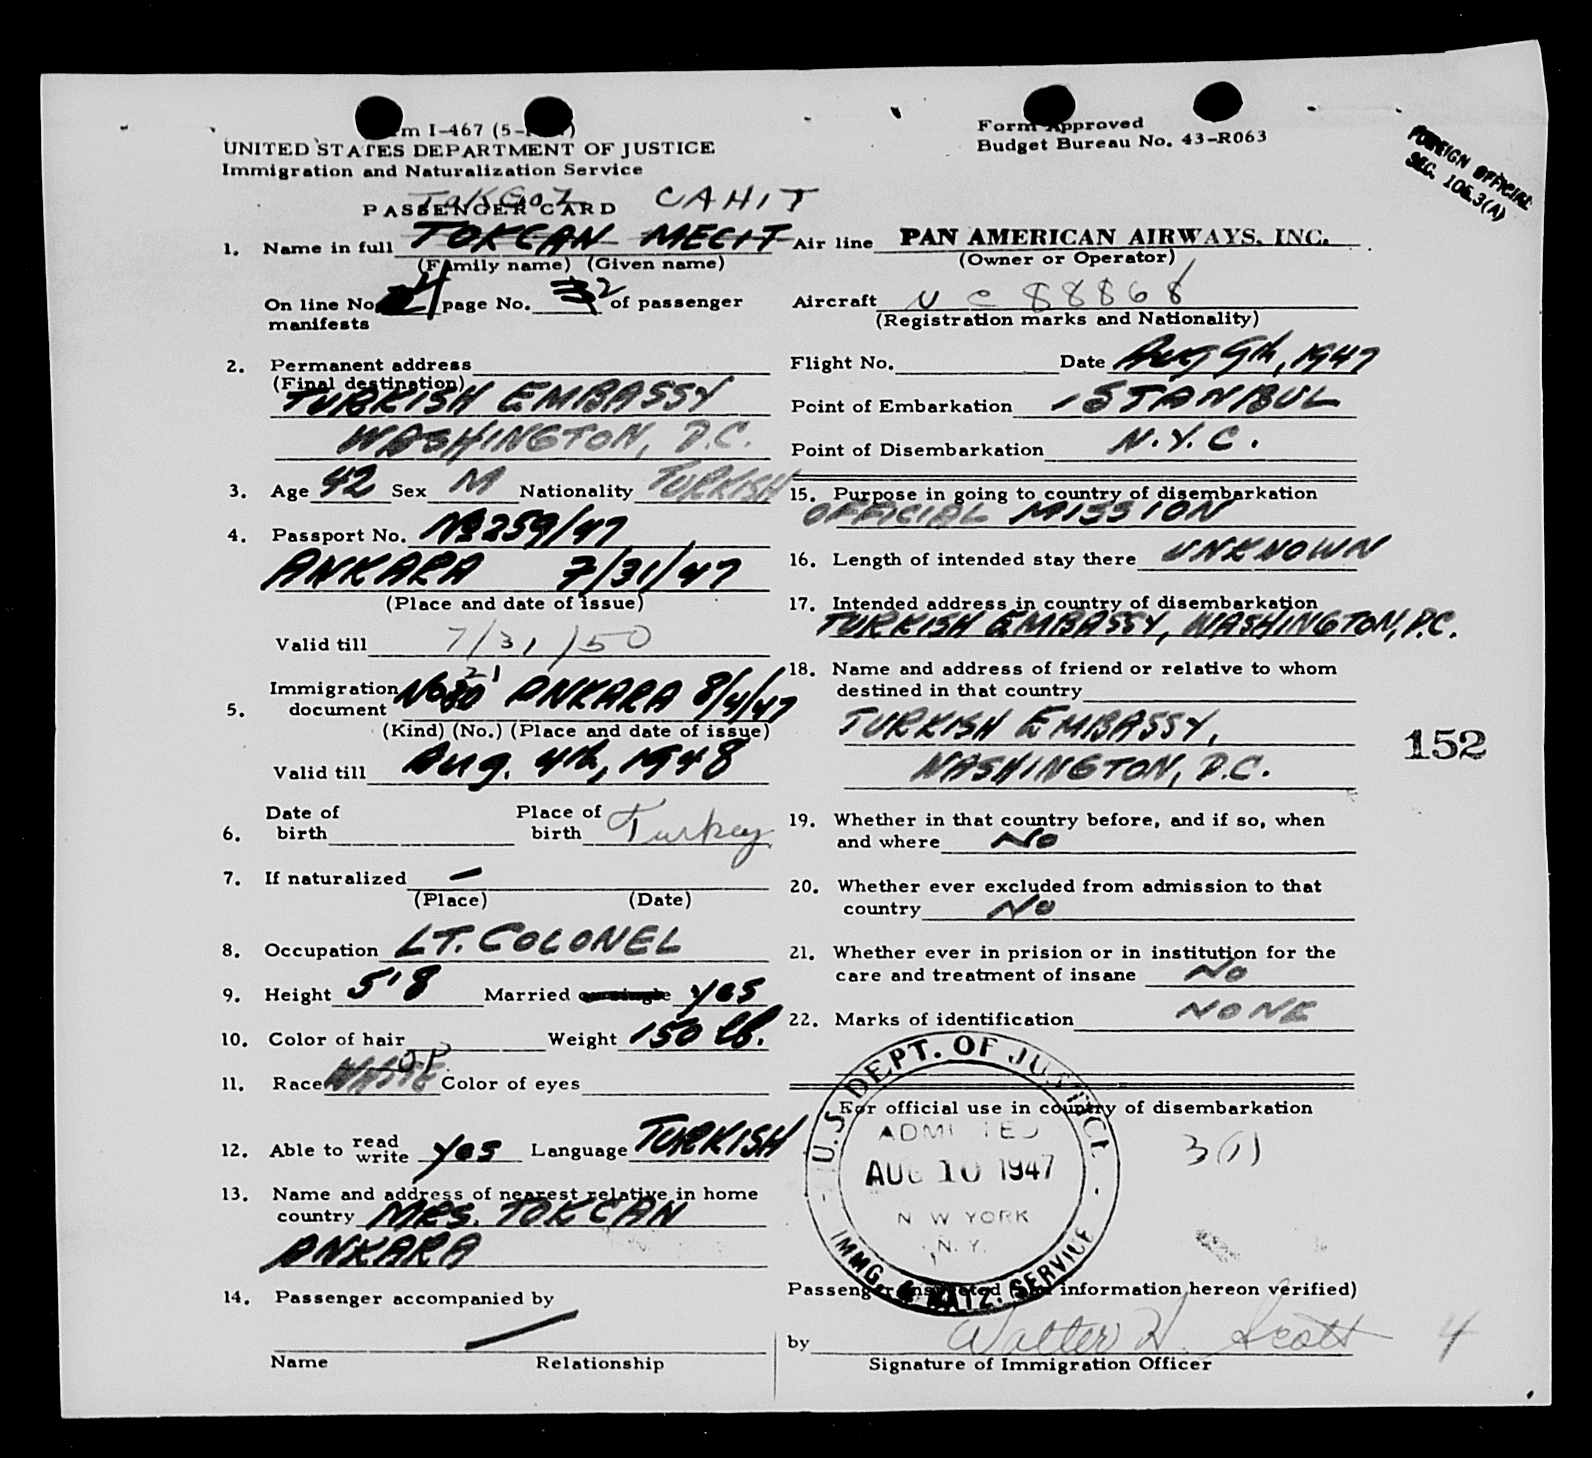 Form I-467 (5-
UNITED STATES DEPARTMENT OF JUSTICE
Immigration and Naturalization Service
Form Approved
Budget Bureau No. 43-R063
FOREIGN OFFICIAL
SEC. 106.3(A)
TOKGOZ CAHIT
PASSENGER CARD
1. Name in full TOKCAN MECIT
(Family name) (Given name)
On line No. 4 page No. 32 of passenger
manifests
2. Permanent address
(Final destination)
TURKISH EMBASSY
WASHINGTON, D.C.
3. Age 42 Sex M Nationality TURKISH
4. Passport No. No 259/47
ANKARA 7/31/47
(Place and date of issue)
Valid till 7/31/50
5. Immigration document No 21 ANKARA 8/4/47
(Kind) (No.) (Place and date of issue)
Valid till Aug. 4th, 1948
6. Date of birth Place of birth Turkey
7. If naturalized –
(Place) (Date)
8. Occupation LT. COLONEL
9. Height 5'8 Married or single yes
10. Color of hair Weight 150 lb.
11. Race WHITE Color of eyes
12. Able to read write yes Language TURKISH
13. Name and address of nearest relative in home
country MRS. TOKCAN
ANKARA
14. Passenger accompanied by
Name Relationship
Air line PAN AMERICAN AIRWAYS, INC.
(Owner or Operator)
Aircraft N C 88868
(Registration marks and Nationality)
Flight No. Date Aug 9th, 1947
Point of Embarkation ISTANBUL
Point of Disembarkation N.Y.C.
15. Purpose in going to country of disembarkation
OFFICIAL MISSION
16. Length of intended stay there UNKNOWN
17. Intended address in country of disembarkation
TURKISH EMBASSY, WASHINGTON, D.C.
18. Name and address of friend or relative to whom
destined in that country
TURKISH EMBASSY,
WASHINGTON, D.C.
152
19. Whether in that country before, and if so, when
and where No
20. Whether ever excluded from admission to that
country No
21. Whether ever in prision or in institution for the
care and treatment of insane No
22. Marks of identification NONE
For official use in country of disembarkation
U.S. DEPT. OF JUSTICE
ADMITTED
AUG 10 1947
NEW YORK
N. Y.
IMMG. & NATZ. SERVICE
Passenger inspected (and information hereon verified)
by Walter H. Scott 4
Signature of Immigration Officer